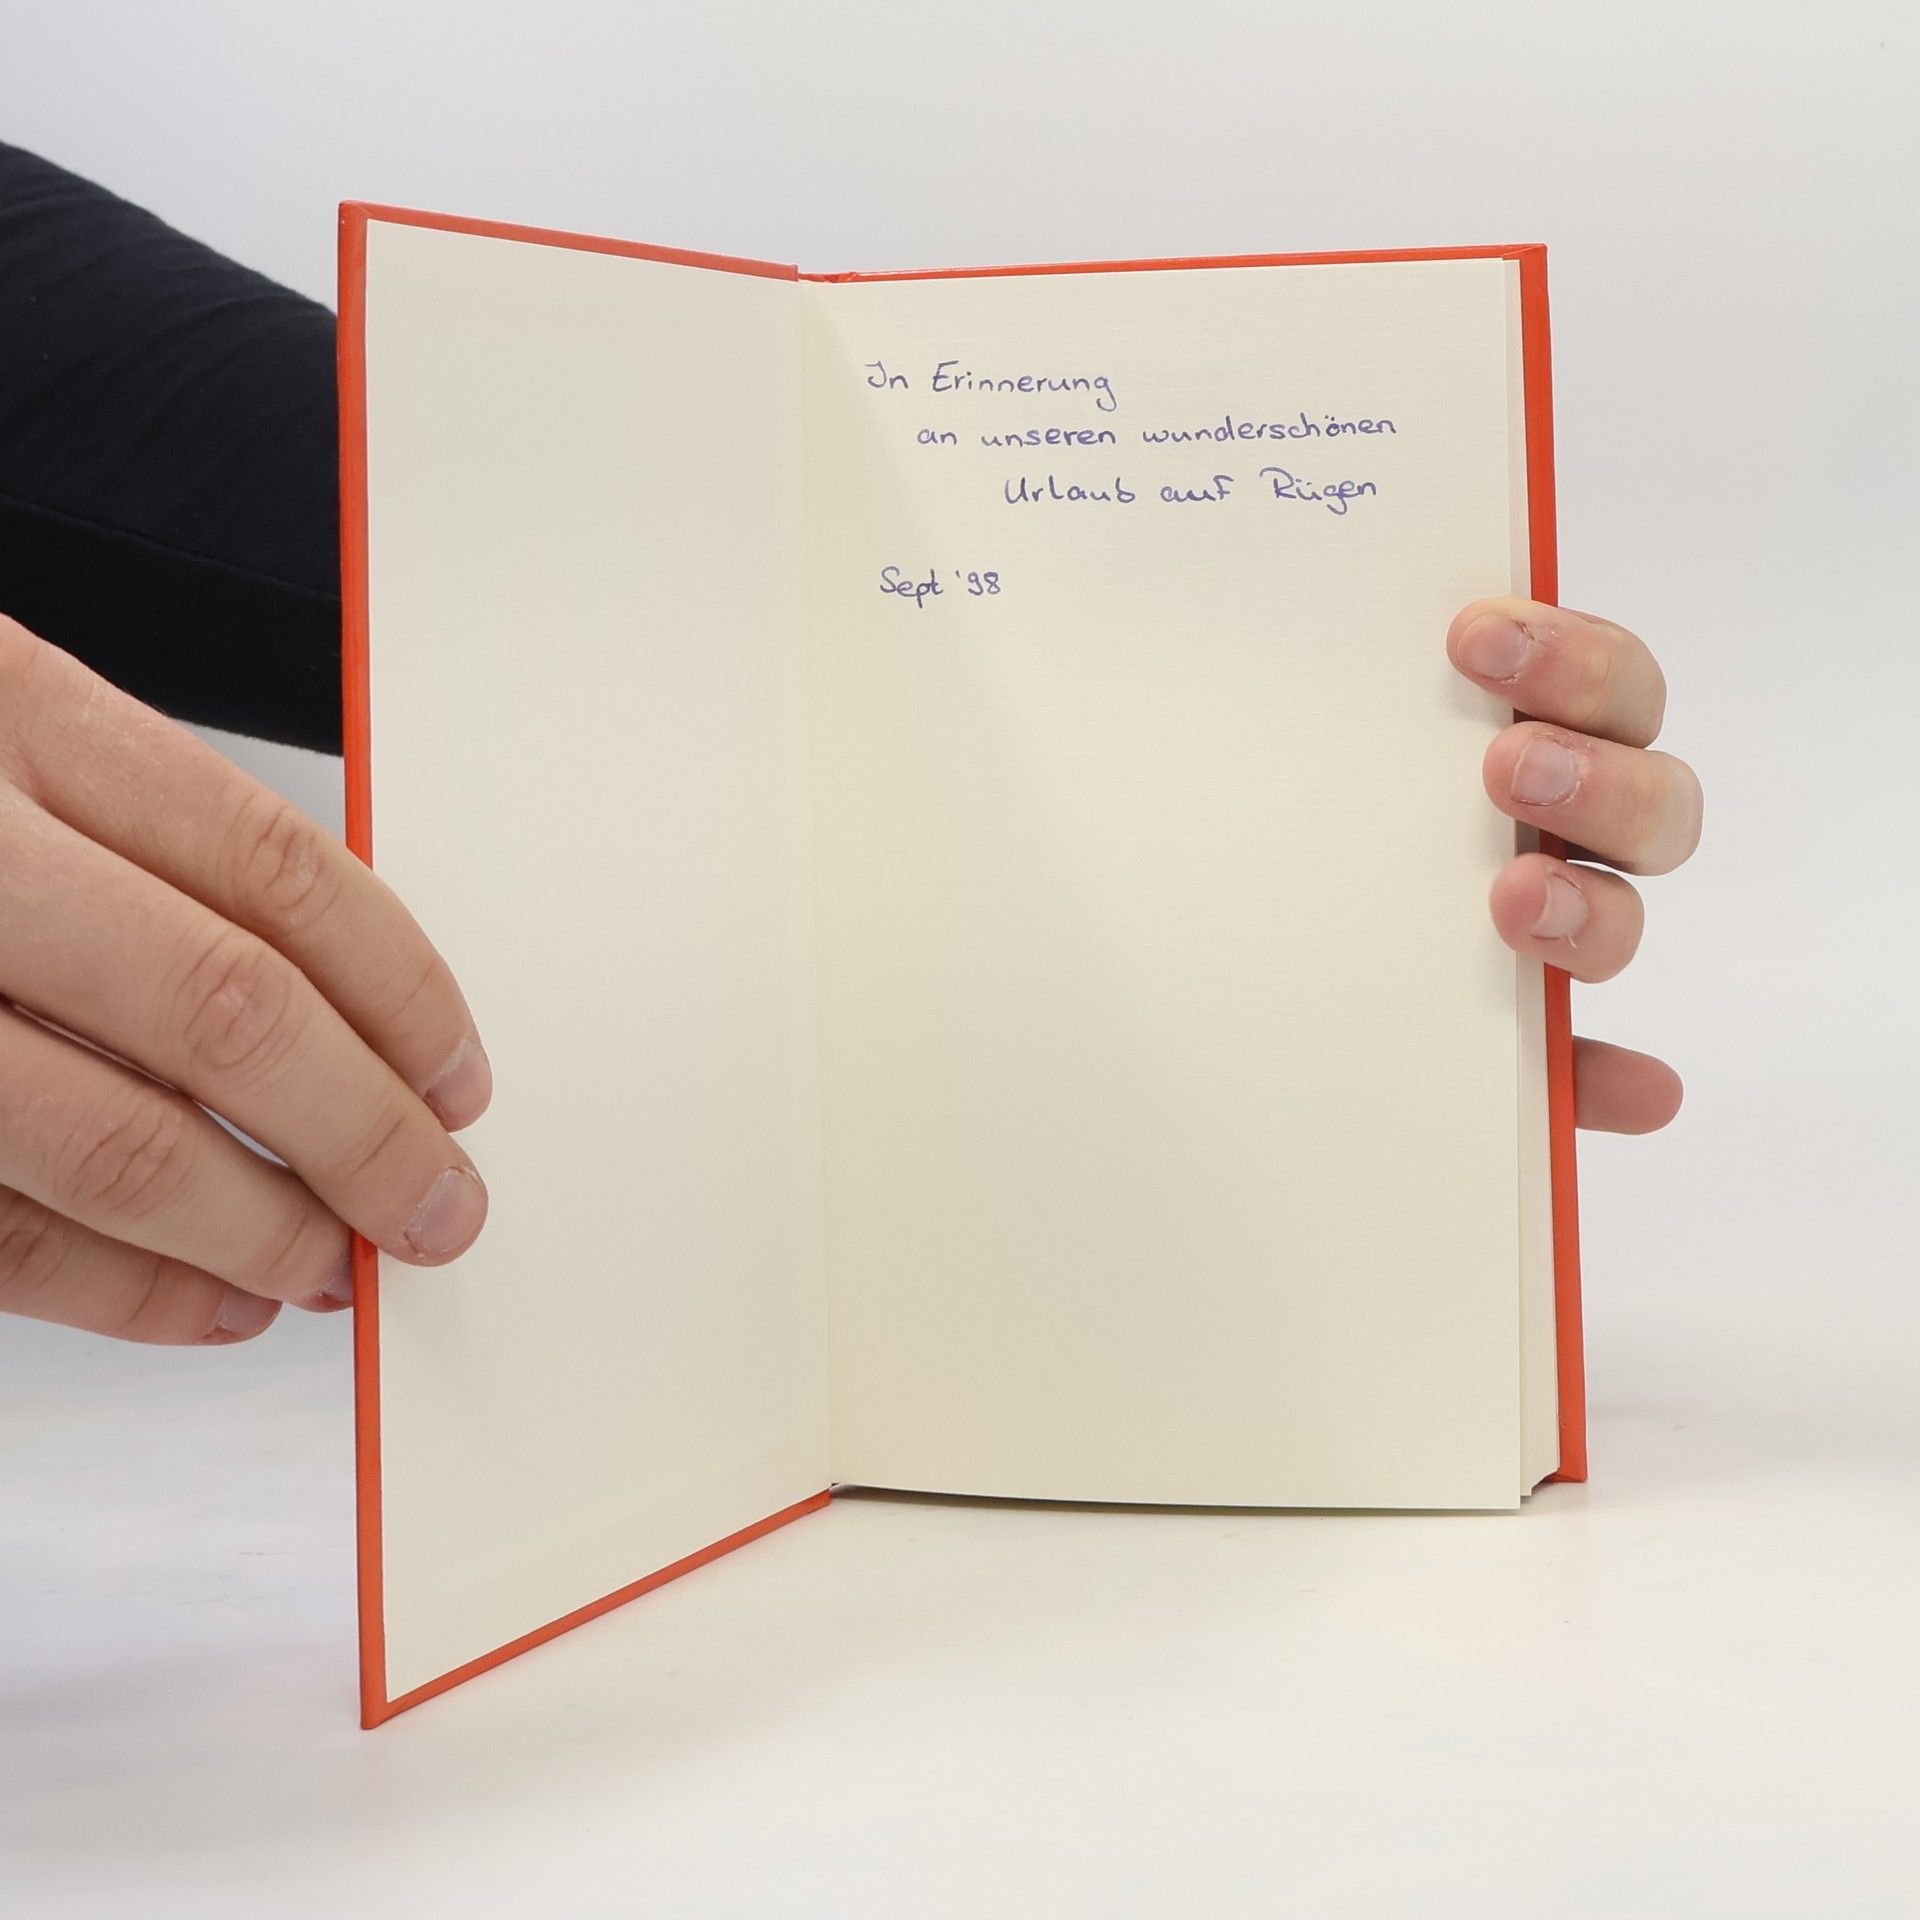 In Erinnerung
an unseren wunderschönen
Urlaub auf Rügen
Sept '98